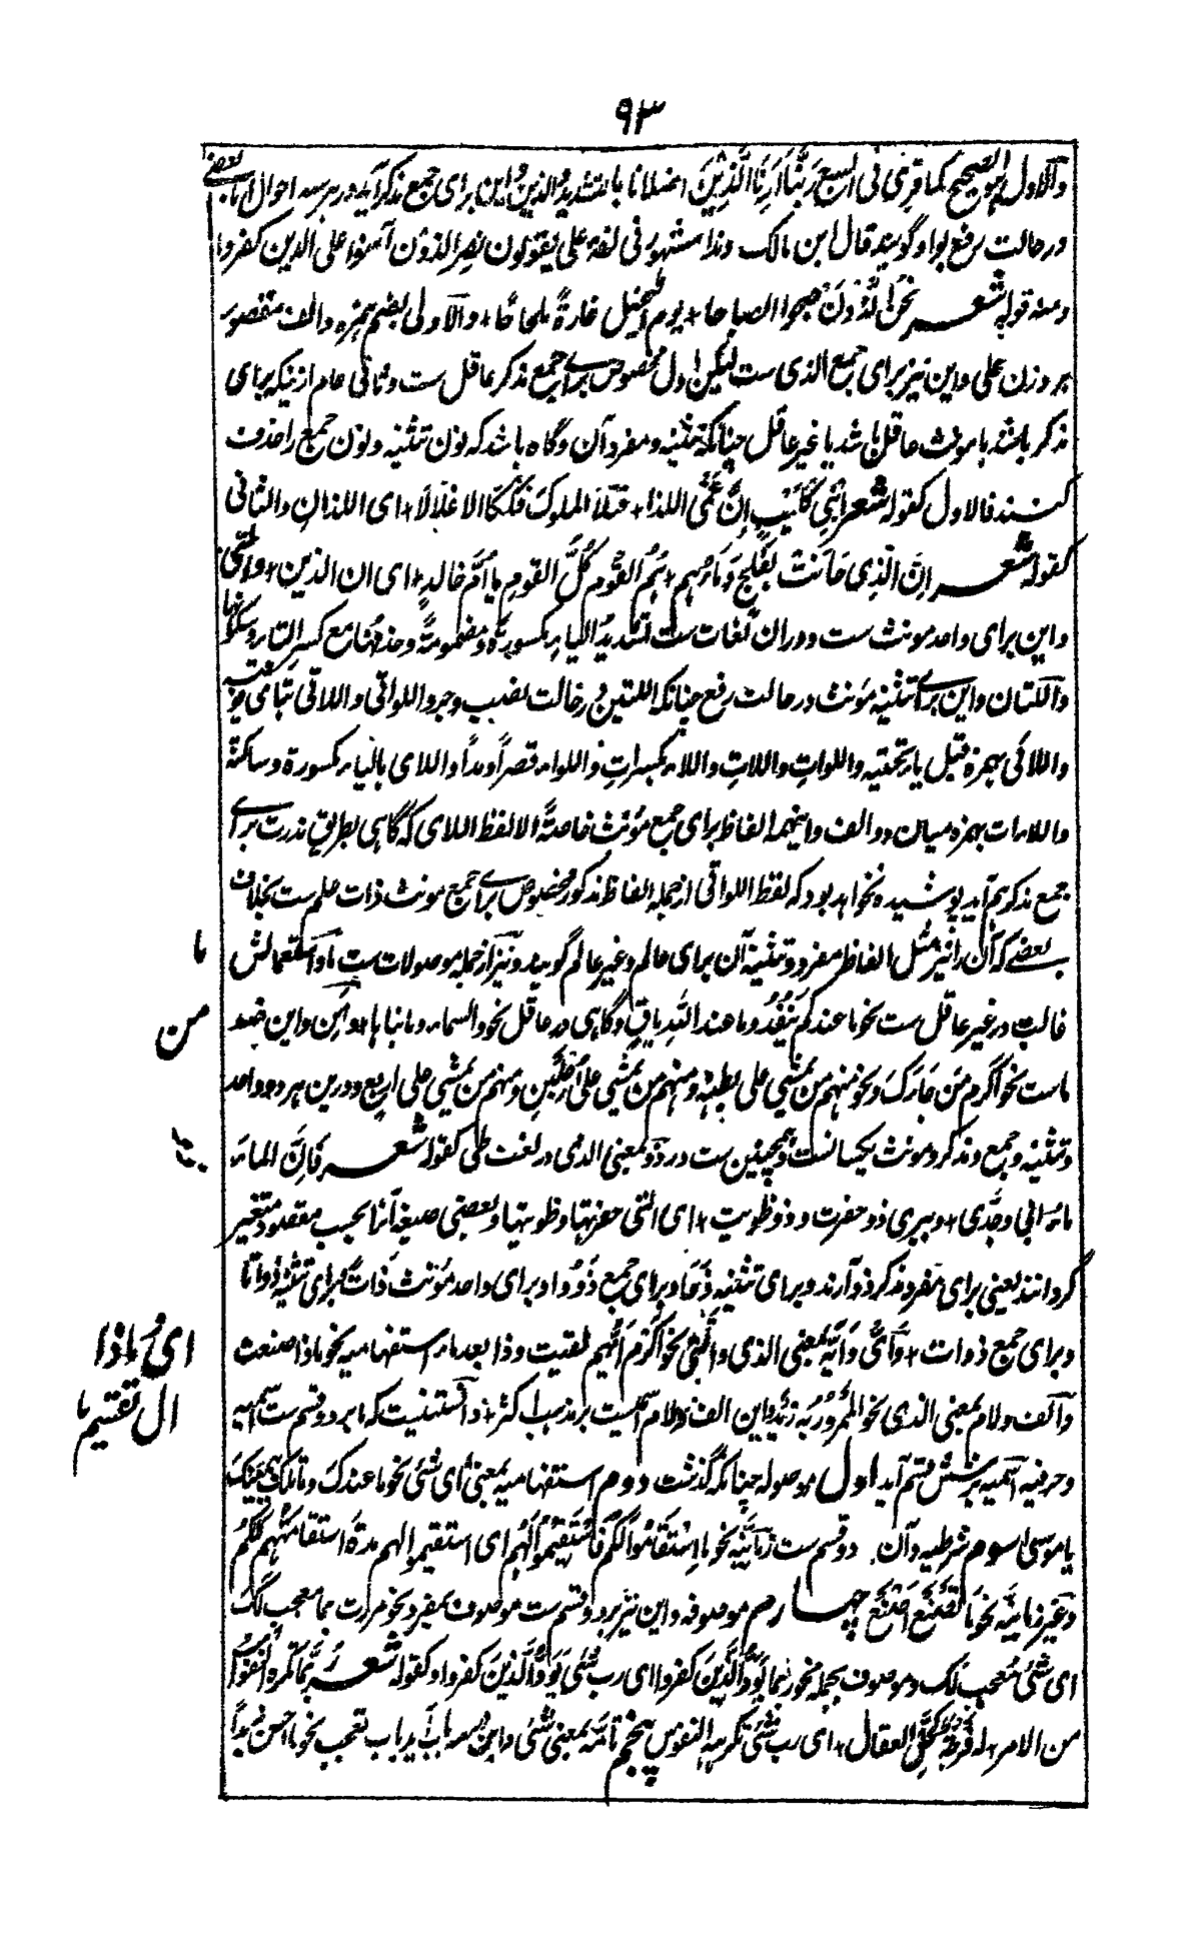 ۹۳
والاول هو الصحیح کما قرئ فی السبع رَبَّنَا اَرِنَا الَّذَیْنِّ اضلانا بالتشدید والذین واین برای جمع مذکر آید در هر سه احوال اما بعضے
در حالت رفع بواو گویند قال ابن مالک وهذا مشهور فی لغة علی یقولون نصر الذون آمنوا علی الذین کفروا
ومنه قوله شعر نحن الَّذُوْنَ صبحوا الصباحا + یوم النخیل غارةً ملحاحًا + والاولی بضم همزه والف مقصور
بر وزن علی واین نیز برای جمع الذی ست لیکن اول مخصوص برای جمع مذکر عاقل ست وثانی عام از نیکه برای
مذکر باشد یا مونث عاقل باشد یا غیر عاقل چنانکه تثنیه ومفرد آن وگاه باشد که نون تثنیه ونون جمع را حذف
کنند فالاول کقوله شعر اَبَنِی کُلَیْبٍ اِنَّ عَمَّیَّ اللذا + قتلا الملوکَ وفککا الاغلالَا + ای اللذان والثانی
کقوله شعر اِنَّ الَّذِی حَانَتْ بِفَلْجٍ دِمَاؤُهم + هُمُ القَوْمُ کُلُّ القومِ یا اُمَّ خَالدٍ + ای ان الذین + والتی
واین برای واحد مونث ست ودران لغات ست تشدیدُ الیاء مکسورةً ومضمومةً وحذفها مع کسر التاء وسکونها
واللتان واین برای تثنیه مؤنث در حالت رفع چنانکه اللتین در حالت نصب وجر واللواتی واللاتی بتای فوقیه
واللائی بهمزه قبل یاء تحتیه واللواتِ واللاتِ واللاء بکسراتٍ واللواء قصراً ومداً واللای بالیاء مکسورة وساکنة
واللاءات بهمزه میان دو الف واینهمه الفاظ برای جمع مؤنث خاصةً الا لفظ اللای که گاهی بطریق ندرت برای
جمع مذکر هم آید پوشیده نخواهد بود که لفظ اللواتی از جمله الفاظ مذکور مخصوص برای جمع مونث ذات علم ست بخلاف
بعضے که آن را نیز مثل الفاظ مفرد وتثنیه آن برای عالم وغیر عالم گویند ونیز از جمله موصولات ست ما واستعمالش
ما
غالب در غیر عاقل ست نحو ما عندکم یَنْفَدُ وما عند اللّٰه باقٍ وگاهی در عاقل نحو والسماء وما بناها + ومَن واین ضد
من
ماست نحو اکرم مَن جَاءَکَ ونحو منهم من یمشی علی بطنه ومنهم من یمشی علی رجلین ومنهم من یمشی علی اربع ودرین هر دو واحد
وتثنیه وجمع ومذکر ومونث یکسانست وهمچنین ست در ذو بمعنی الذی در لغت طی کقوله شعر فَاِنَّ الماءَ
ماءُ ابی وجَدّی + وبیری ذو حفرت وذو طویت + ای التی حفرتها وطویتها وبعضی صیغه آنرا بحسب مقصود متغیر
گردانند یعنی برای مفرد مذکر ذو آرند وبرای تثنیه ذَوَا وبرای جمع ذَوُو وبرای واحد مؤنث ذاتُ وبرای تثنیه ذواتا
وبرای جمع ذوات + وَاَیٌّ وَاَیَّةٌ بمعنی الذی والَّتی نحو اکرم اَیُّهم لقیت وذا بعد ما استفهامیه نحو ماذا صنعت
ای ماذا
والف ولام بمعنی الذی نحو المرور به زیدٌ واین الف ولام اسمیست بر مذهب اکثر + دانستنیست که ما بر دو قسم ست اسمیه
ال تقسیم ما
وحرفیه اسمیه بر شش قسم آید اول موصوله چنانکه گذشت دوم استفهامیه بمعنی ای شئ نحو ما عندک وما تلک بیمینک
یا موسی سوم شرطیه وآن دو قسم ست زمانیّه نحو ما اسْتَقَامُوا لَکُمْ فَاسْتَقِیْمُوا لَهُم ای استقیموا لهم مدة استقامتهم لکم
وغیر زمانیّه نحو ما تَصْنَعْ اَصْنَعْ چهارم موصوفه واین نیز بر دو قسم ست موصوف بمفرد نحو مررت بما معجب لک
ای شئ معجب لک وموصوف بجمله نحو ربما یَوَدُّ الَّذِیْنَ کفروا ای رب شئ یودّ الذین کفروا وکقوله شعر رُبَّما تکره النفوس
من الامر + له فرجة کحل العقال + ای رب شئ تکرهه النفوس پنجم تامّه بمعنی شئ واین در باب آید باب تعجب نحو ما احسن زیداً